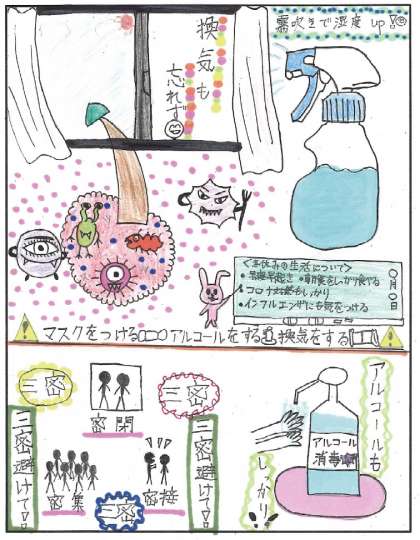 霧吹きで湿度up!!
換気も
忘れず
<冬休みの生活について>
•早寝早起き •朝食をしっかり食べる
•コロナ対策をしっかり
•インフルエンザにも気をつける
○月○日
マスクをつける アルコールをする 換気をする
三密
三密
密閉
三密避けて!!
三密避けて!!
密集
密接
三密
アルコールも
しっかり!!
アルコール
消毒